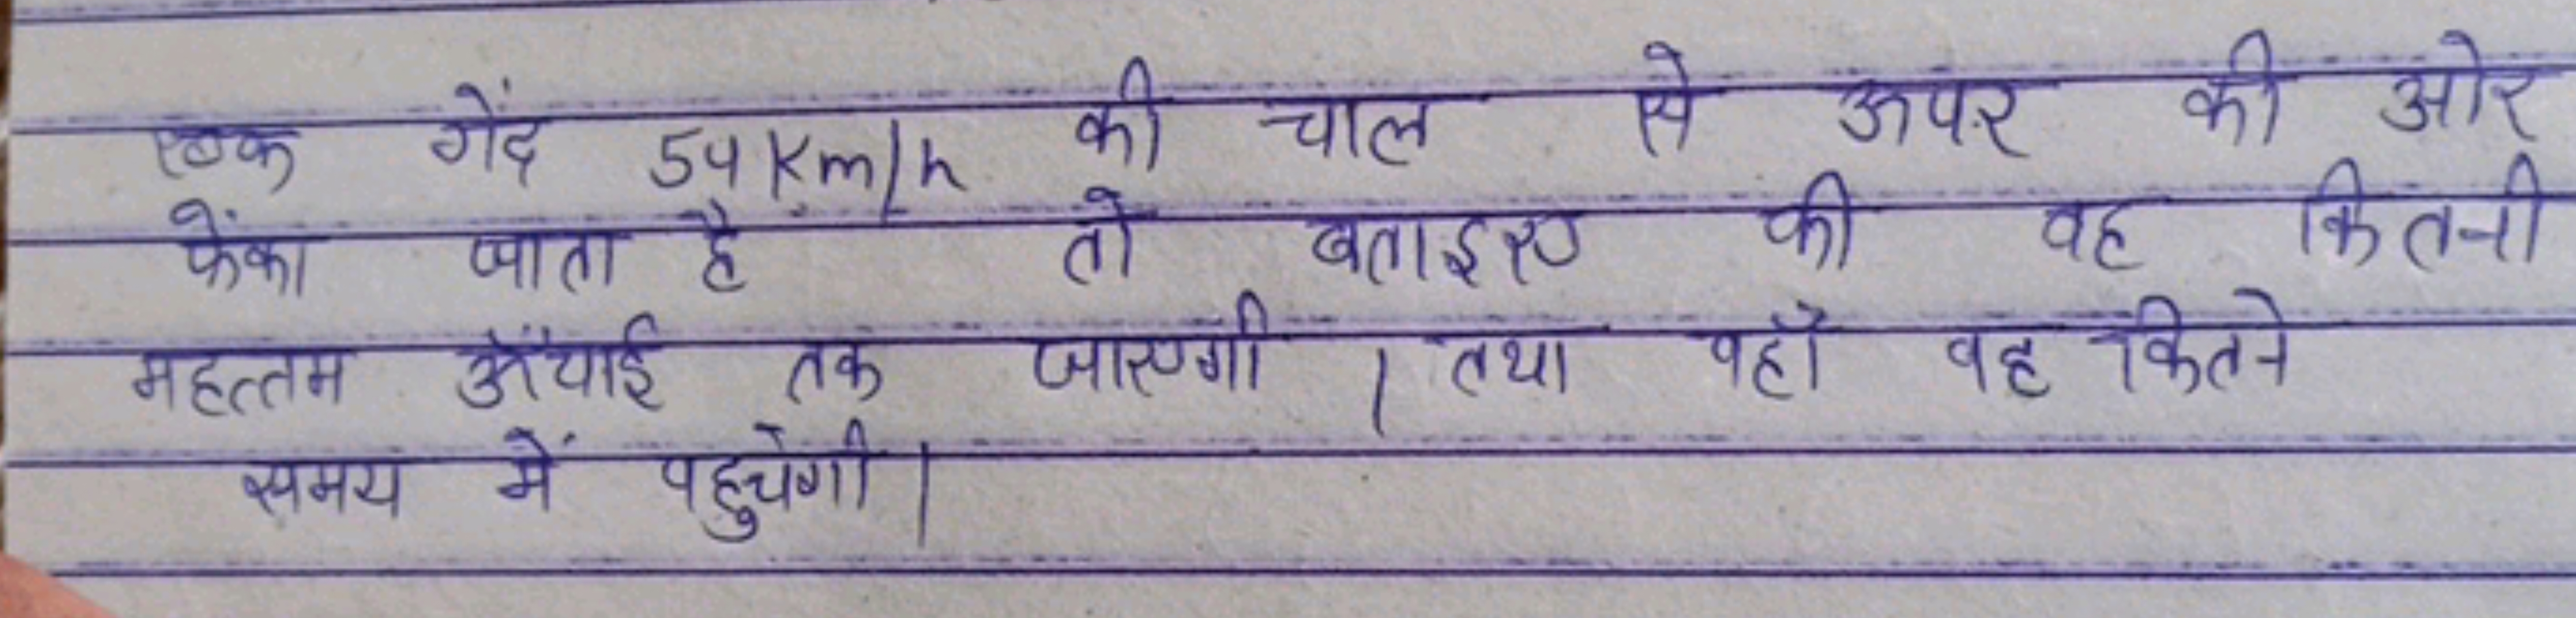 एक गेंद 54 Km/h की चाल से ऊपर की ओर
फेंका जाता है तो बताइए की वह कितनी
महत्तम ऊँचाई तक जाएगी । तथा वहाँ वह कितने
समय में पहुचेगी ।